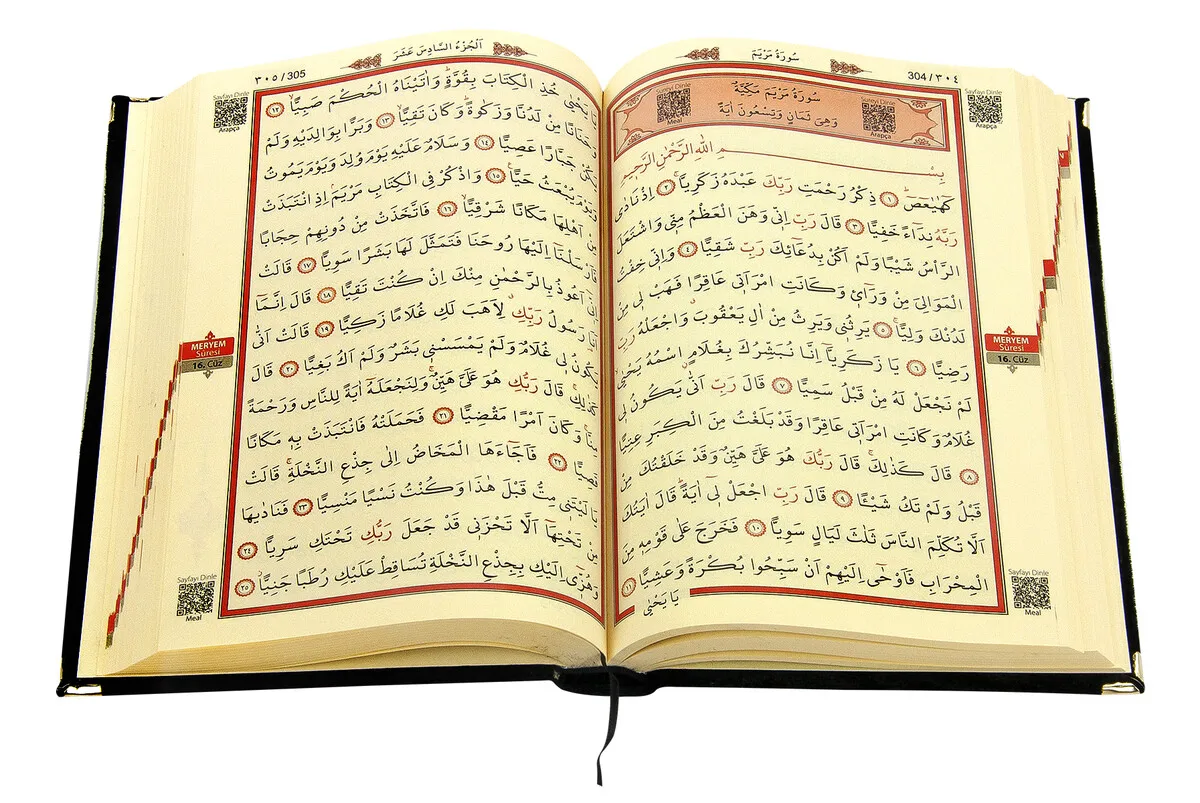 سُورَةُ مَرْيَمَ
304/٣٠٤
Sureyi Dinle
Meal
Sureyi Dinle
Arapça
Sayfayı Dinle
Arapça
سُورَةُ مَرْيَمَ مَكِّيَّةٌ
وَهِيَ ثَمَانٍ وَتِسْعُونَ اٰيَةً
بِسْمِ اللّٰهِ الرَّحْمٰنِ الرَّحِيمِ
كٓهٰيٰعٓصٓ ﴿١﴾ ذِكْرُ رَحْمَتِ رَبِّكَ عَبْدَهُ زَكَرِيَّا ﴿٢﴾ اِذْ نَادٰى
رَبَّهُ نِدَٓاءً خَفِيًّا ﴿٣﴾ قَالَ رَبِّ اِنّٖي وَهَنَ الْعَظْمُ مِنّٖي وَاشْتَعَلَ
الرَّأْسُ شَيْبًا وَلَمْ اَكُنْ بِدُعَٓائِكَ رَبِّ شَقِيًّا ﴿٤﴾ وَاِنّٖي خِفْتُ
الْمَوَالِيَ مِنْ وَرَٓاءٖي وَكَانَتِ امْرَاَتٖي عَاقِرًا فَهَبْ لٖي مِنْ
لَدُنْكَ وَلِيًّا ﴿٥﴾ يَرِثُنٖي وَيَرِثُ مِنْ اٰلِ يَعْقُوبَ وَاجْعَلْهُ رَبِّ
رَضِيًّا ﴿٦﴾ يَا زَكَرِيَّٓا اِنَّا نُبَشِّرُكَ بِغُلَامٍ اسْمُهُ يَحْيٰى
لَمْ نَجْعَلْ لَهُ مِنْ قَبْلُ سَمِيًّا ﴿٧﴾ قَالَ رَبِّ اَنّٰى يَكُونُ لٖي
غُلَامٌ وَكَانَتِ امْرَاَتٖي عَاقِرًا وَقَدْ بَلَغْتُ مِنَ الْكِبَرِ عِتِيًّا
﴿٨﴾ قَالَ كَذٰلِكَ قَالَ رَبُّكَ هُوَ عَلَيَّ هَيِّنٌ وَقَدْ خَلَقْتُكَ مِنْ
قَبْلُ وَلَمْ تَكُ شَيْـًٔا ﴿٩﴾ قَالَ رَبِّ اجْعَلْ لٖٓي اٰيَةً قَالَ اٰيَتُكَ
اَلَّا تُكَلِّمَ النَّاسَ ثَلٰثَ لَيَالٍ سَوِيًّا ﴿١٠﴾ فَخَرَجَ عَلٰى قَوْمِهٖ مِنَ
الْمِحْرَابِ فَاَوْحٰٓى اِلَيْهِمْ اَنْ سَبِّحُوا بُكْرَةً وَعَشِيًّا ﴿١١﴾
يَا يَحْيٰى
MERYEM
Sûresi
16. Cüz
Sayfayı Dinle
Meal
اَلْجُزْءُ السَّادِسَ عَشَرَ
٣٠٥/305
Sayfayı Dinle
Arapça
يَا يَحْيٰى خُذِ الْكِتَابَ بِقُوَّةٍ وَاٰتَيْنَاهُ الْحُكْمَ صَبِيًّا ﴿١٢﴾
وَحَنَانًا مِنْ لَدُنَّا وَزَكٰوةً وَكَانَ تَقِيًّا ﴿١٣﴾ وَبَرًّا بِوَالِدَيْهِ وَلَمْ
يَكُنْ جَبَّارًا عَصِيًّا ﴿١٤﴾ وَسَلَامٌ عَلَيْهِ يَوْمَ وُلِدَ وَيَوْمَ يَمُوتُ
وَيَوْمَ يُبْعَثُ حَيًّا ﴿١٥﴾ وَاذْكُرْ فِي الْكِتَابِ مَرْيَمَ اِذِ انْتَبَذَتْ
مِنْ اَهْلِهَا مَكَانًا شَرْقِيًّا ﴿١٦﴾ فَاتَّخَذَتْ مِنْ دُونِهِمْ حِجَابًا
فَاَرْسَلْنَٓا اِلَيْهَا رُوحَنَا فَتَمَثَّلَ لَهَا بَشَرًا سَوِيًّا ﴿١٧﴾ قَالَتْ
اِنّٖٓي اَعُوذُ بِالرَّحْمٰنِ مِنْكَ اِنْ كُنْتَ تَقِيًّا ﴿١٨﴾ قَالَ اِنَّمَٓا
اَنَا رَسُولُ رَبِّكِ لِاَهَبَ لَكِ غُلَامًا زَكِيًّا ﴿١٩﴾ قَالَتْ اَنّٰى
يَكُونُ لٖي غُلَامٌ وَلَمْ يَمْسَسْنٖي بَشَرٌ وَلَمْ اَكُ بَغِيًّا ﴿٢٠﴾ قَالَ
كَذٰلِكِ قَالَ رَبُّكِ هُوَ عَلَيَّ هَيِّنٌ وَلِنَجْعَلَهُٓ اٰيَةً لِلنَّاسِ وَرَحْمَةً
مِنَّا وَكَانَ اَمْرًا مَقْضِيًّا ﴿٢١﴾ فَحَمَلَتْهُ فَانْتَبَذَتْ بِهٖ مَكَانًا
قَصِيًّا ﴿٢٢﴾ فَاَجَٓاءَهَا الْمَخَاضُ اِلٰى جِذْعِ النَّخْلَةِ قَالَتْ
يَا لَيْتَنٖي مِتُّ قَبْلَ هٰذَا وَكُنْتُ نَسْيًا مَنْسِيًّا ﴿٢٣﴾ فَنَادٰيهَا
مِنْ تَحْتِهَٓا اَلَّا تَحْزَنٖي قَدْ جَعَلَ رَبُّكِ تَحْتَكِ سَرِيًّا ﴿٢٤﴾
وَهُزّٖٓي اِلَيْكِ بِجِذْعِ النَّخْلَةِ تُسَاقِطْ عَلَيْكِ رُطَبًا جَنِيًّا ﴿٢٥﴾
MERYEM
Sûresi
16. Cüz
Sayfayı Dinle
Meal